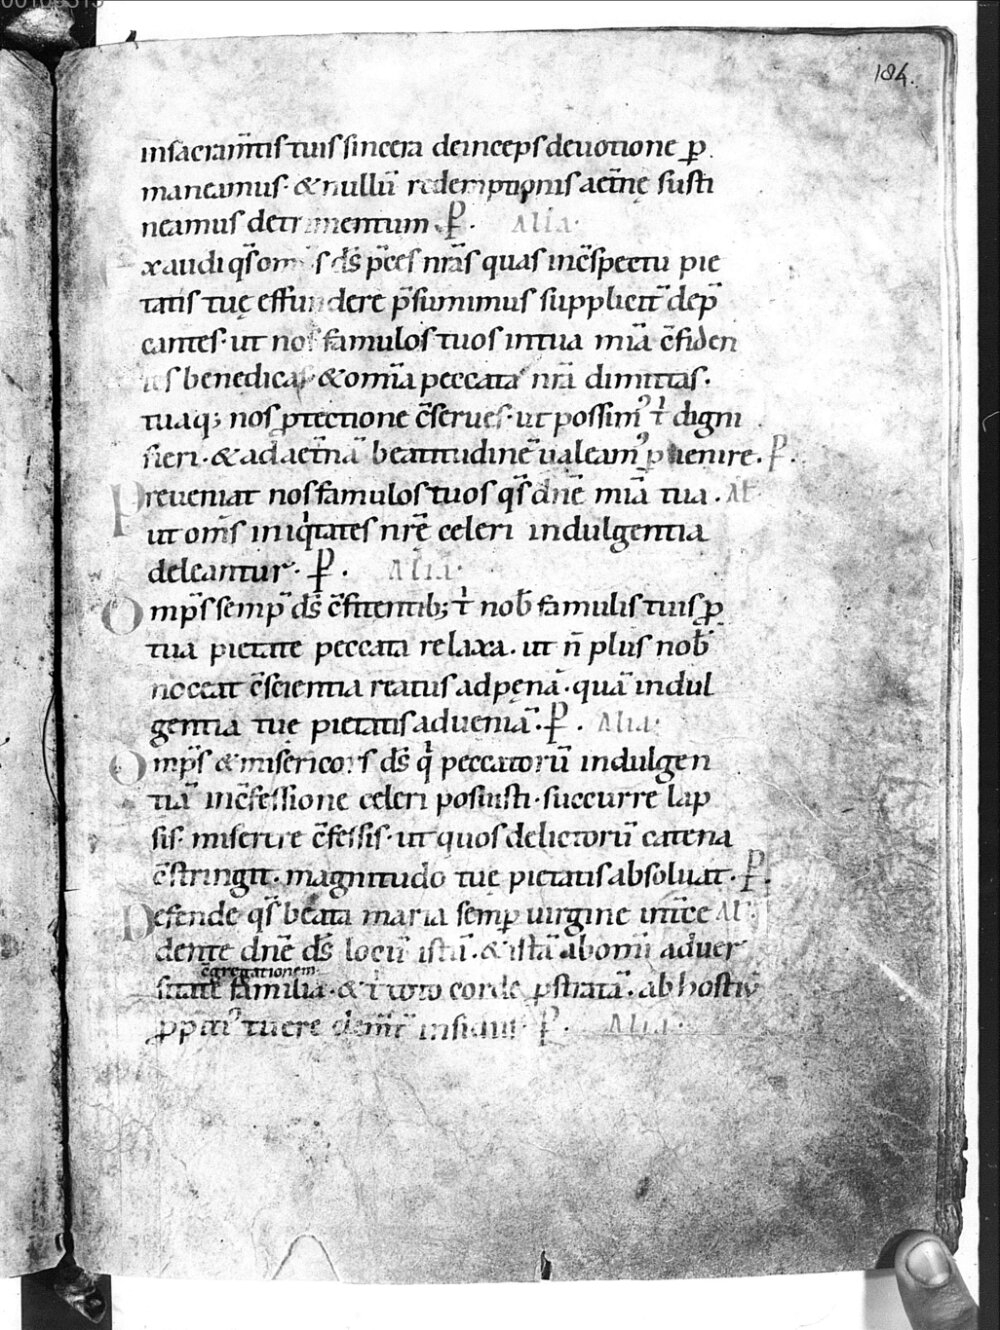 184.
insacram̅tis tuis sincera deinceps deuotione ꝑ
maneamus· & nullu̅ redemptionis aet̅nę susti
neamus detrimentum ꝑ. Alia·
xaudi qs̅ om̅s ds̅ p̅ces nr̅as quas inc̅spectu pie
tatis tuę effundere p̅sumimus supplicit̅ dep̅
cantes· ut nos famulos tuos intua mia̅ c̅fiden
tes benedicas· & omia̅ peccata nr̅a dimittas·
tuaq; nos ꝓtectione c̅serues· ut possim᾿ t̅ digni
fieri· & ad aet̅na̅ beatitudine̅ ualeam᾿ ꝑuenire. ꝑ.
Preueniat nos famulos tuos qs̅ dn̅e mia̅ tua. Al̅
ut om̅s iniqitates nr̅e celeri indulgentia
deleantur· ꝑ. Alia·
Omp̅s semp̅ ds̅ c̅fitentib; t̅ nob̅ famulis tuis ꝓ
tua pietate peccata relaxa. ut n̅ plus nob̅
noceat c̅scientia reatus ad pęna̅· qua̅ indul
gentia tuę pietatis adueniā. ꝑ. Alia·
Omp̅s & misericors ds̅ q̍ peccatoru̅ indulgen
tia̅ inc̅fessione celeri posuisti· succurre lap
sis· miserere c̅fessis· ut quos delictoru̅ catena
c̅stringit· magnitudo tuę pietatis absoluat· ꝑ.
Defende qs̅ beata maria semꝑ uirgine int̅ce Al̅
dente dn̅e ds̅ locu̅ istu̅· & ista̅ abomi̅ aduer
c̅gregationem
sitate familia̅· & t̅ toto corde ꝓstrata̅· ab hostiu̅
ꝓpiti᾿ tuere clem̅t̅ insidiis· ꝑ. Alia·